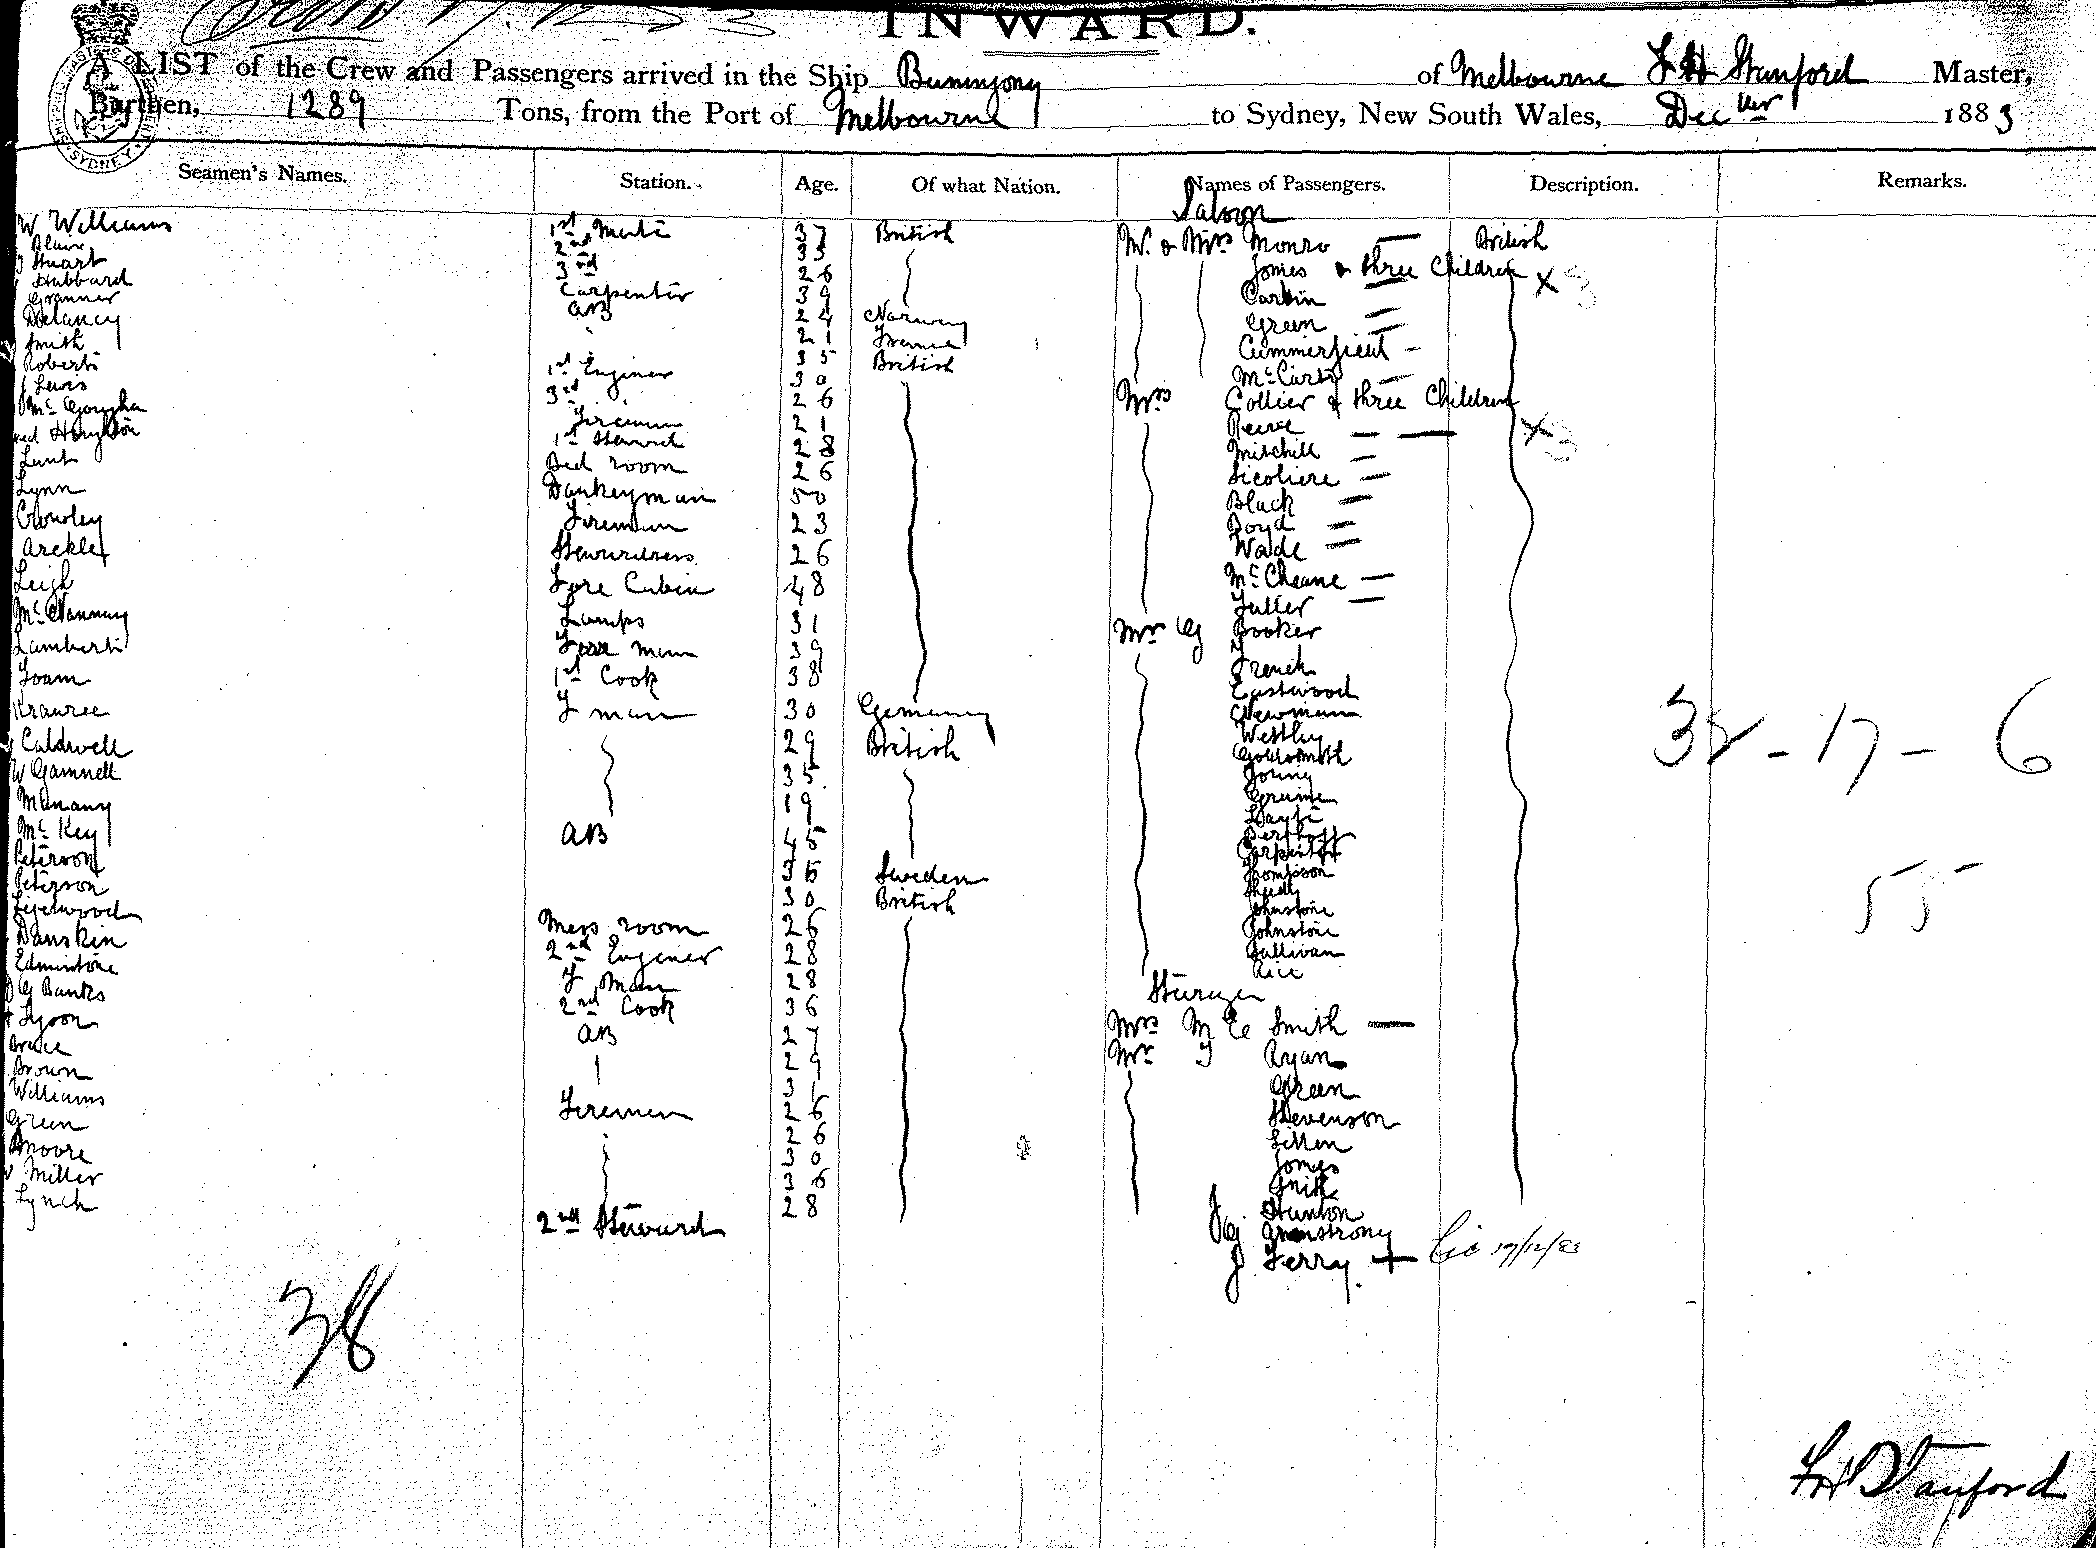 INWARD.
A LIST of the Crew and Passengers arrived in the Ship Buninyong of Melbourne F H Stanford Master,
Burthen, 1289 Tons, from the Port of Melbourne to Sydney, New South Wales, Decber 1883
Seamen's Names. Station. Age. Of what Nation. Names of Passengers. Description. Remarks.
Saloon
W Williams 1st Mate 37 British Mr. & Mrs Monro — British
Blair 2nd 35
Stuart 3rd 26 Jones & three Children X 3
Hubbard Carpenter 39 Carbin —
Granner AB 24 Norway Green —
Delancy 21 France Cummerfield -
Smith 1st Engineer 35 British McCarty —
Roberts 3rd 30 Mrs Collier & three Children X 3
Lewis Fireman 26 Peirce — —
Mc Gough 1st Steward 21 Mitchell —
Houghton Bed room 28 Sicoliere —
Lant Donkeyman 26 Black —
Lynn Fireman 50 Boyd —
Crowley Stewardess 23 Wade —
Arckley Fore Cabin 26 McCheane —
Leigh Lamps 48 Fuller —
Fore man 31 Mr G Booker
Lamberti 1st Cook 39 French
Foam F man 38 Eastwood
30 Germany Newman
Caldwell 29 British Westley
W Gamnell 35 Goldsmith
Munany 19 Young
Mc Key AB 45 Grume
Peterson 36 Sweden Hayle
Peterson 30 British Berthoff
Mess room 26 Carpenter
Danskin 2nd Engineer 28 Thompson
Edmintone F Man 28 Sheedy
G Banks 2nd Cook 36 Johnstone
Tyson AB 27 Johnstone
Bruce 29 Sullivan
Brown 31 Rice
Williams Firemen 26 Steerage
Green 26 Mrs M E Smith —
Moore 30 Mr J Ryan
Miller 36 Green
Lynch 2nd Steward 28 Stevenson
Jones
Smith
J Stanton
G Armstrong
J Ferry + 17/12/83
38 - 17 - 6
55
38
F H Stanford